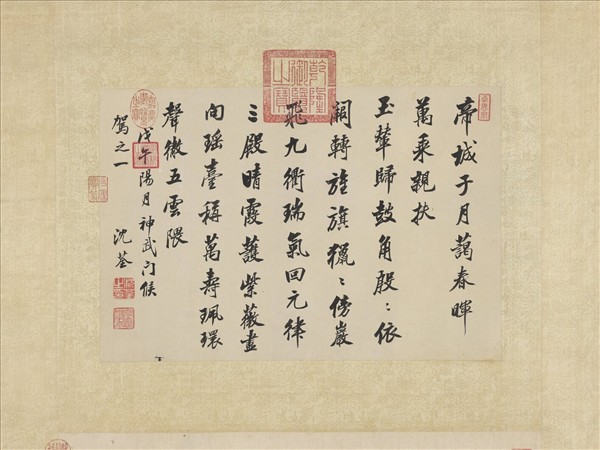 乾隆御覽之寶
帝城子月藹春暉
萬乘親扶
玉輦歸鼓角殷〻依
闕轉旌旗獵〻傍巖
飛九衢瑞氣回元律
三殿晴霞護紫薇盡
向瑤臺稱萬壽珮環
聲徹五雲隈
戊午陽月神武门候
駕之一 沈荃